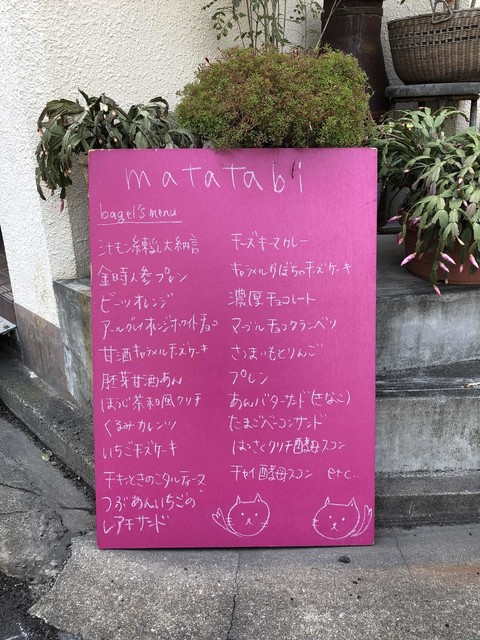 matatabi
bagel's menu
大納言
金時人参プレン
ビーツオレンジ
アールグレイオレンジホワイトチョコ
甘酒キャラメルチーズケーキ
胚芽甘酒あん
ほうじ茶和風クリチ
くるみカレンツ
いちごチーズケーキ
チキンときのこタルティーヌ
つぶあんいちごの
レアチサンド
チーズキーマカレー
キャラメルかぼちゃチーズケーキ
濃厚チョコレート
マーブルチョコクランベリ
さつまいもとりんご
プレン
あんバターサンド(きなこ)
たまごベーコンサンド
はっさくクリチ酵母スコン
チャイ酵母スコン etc...